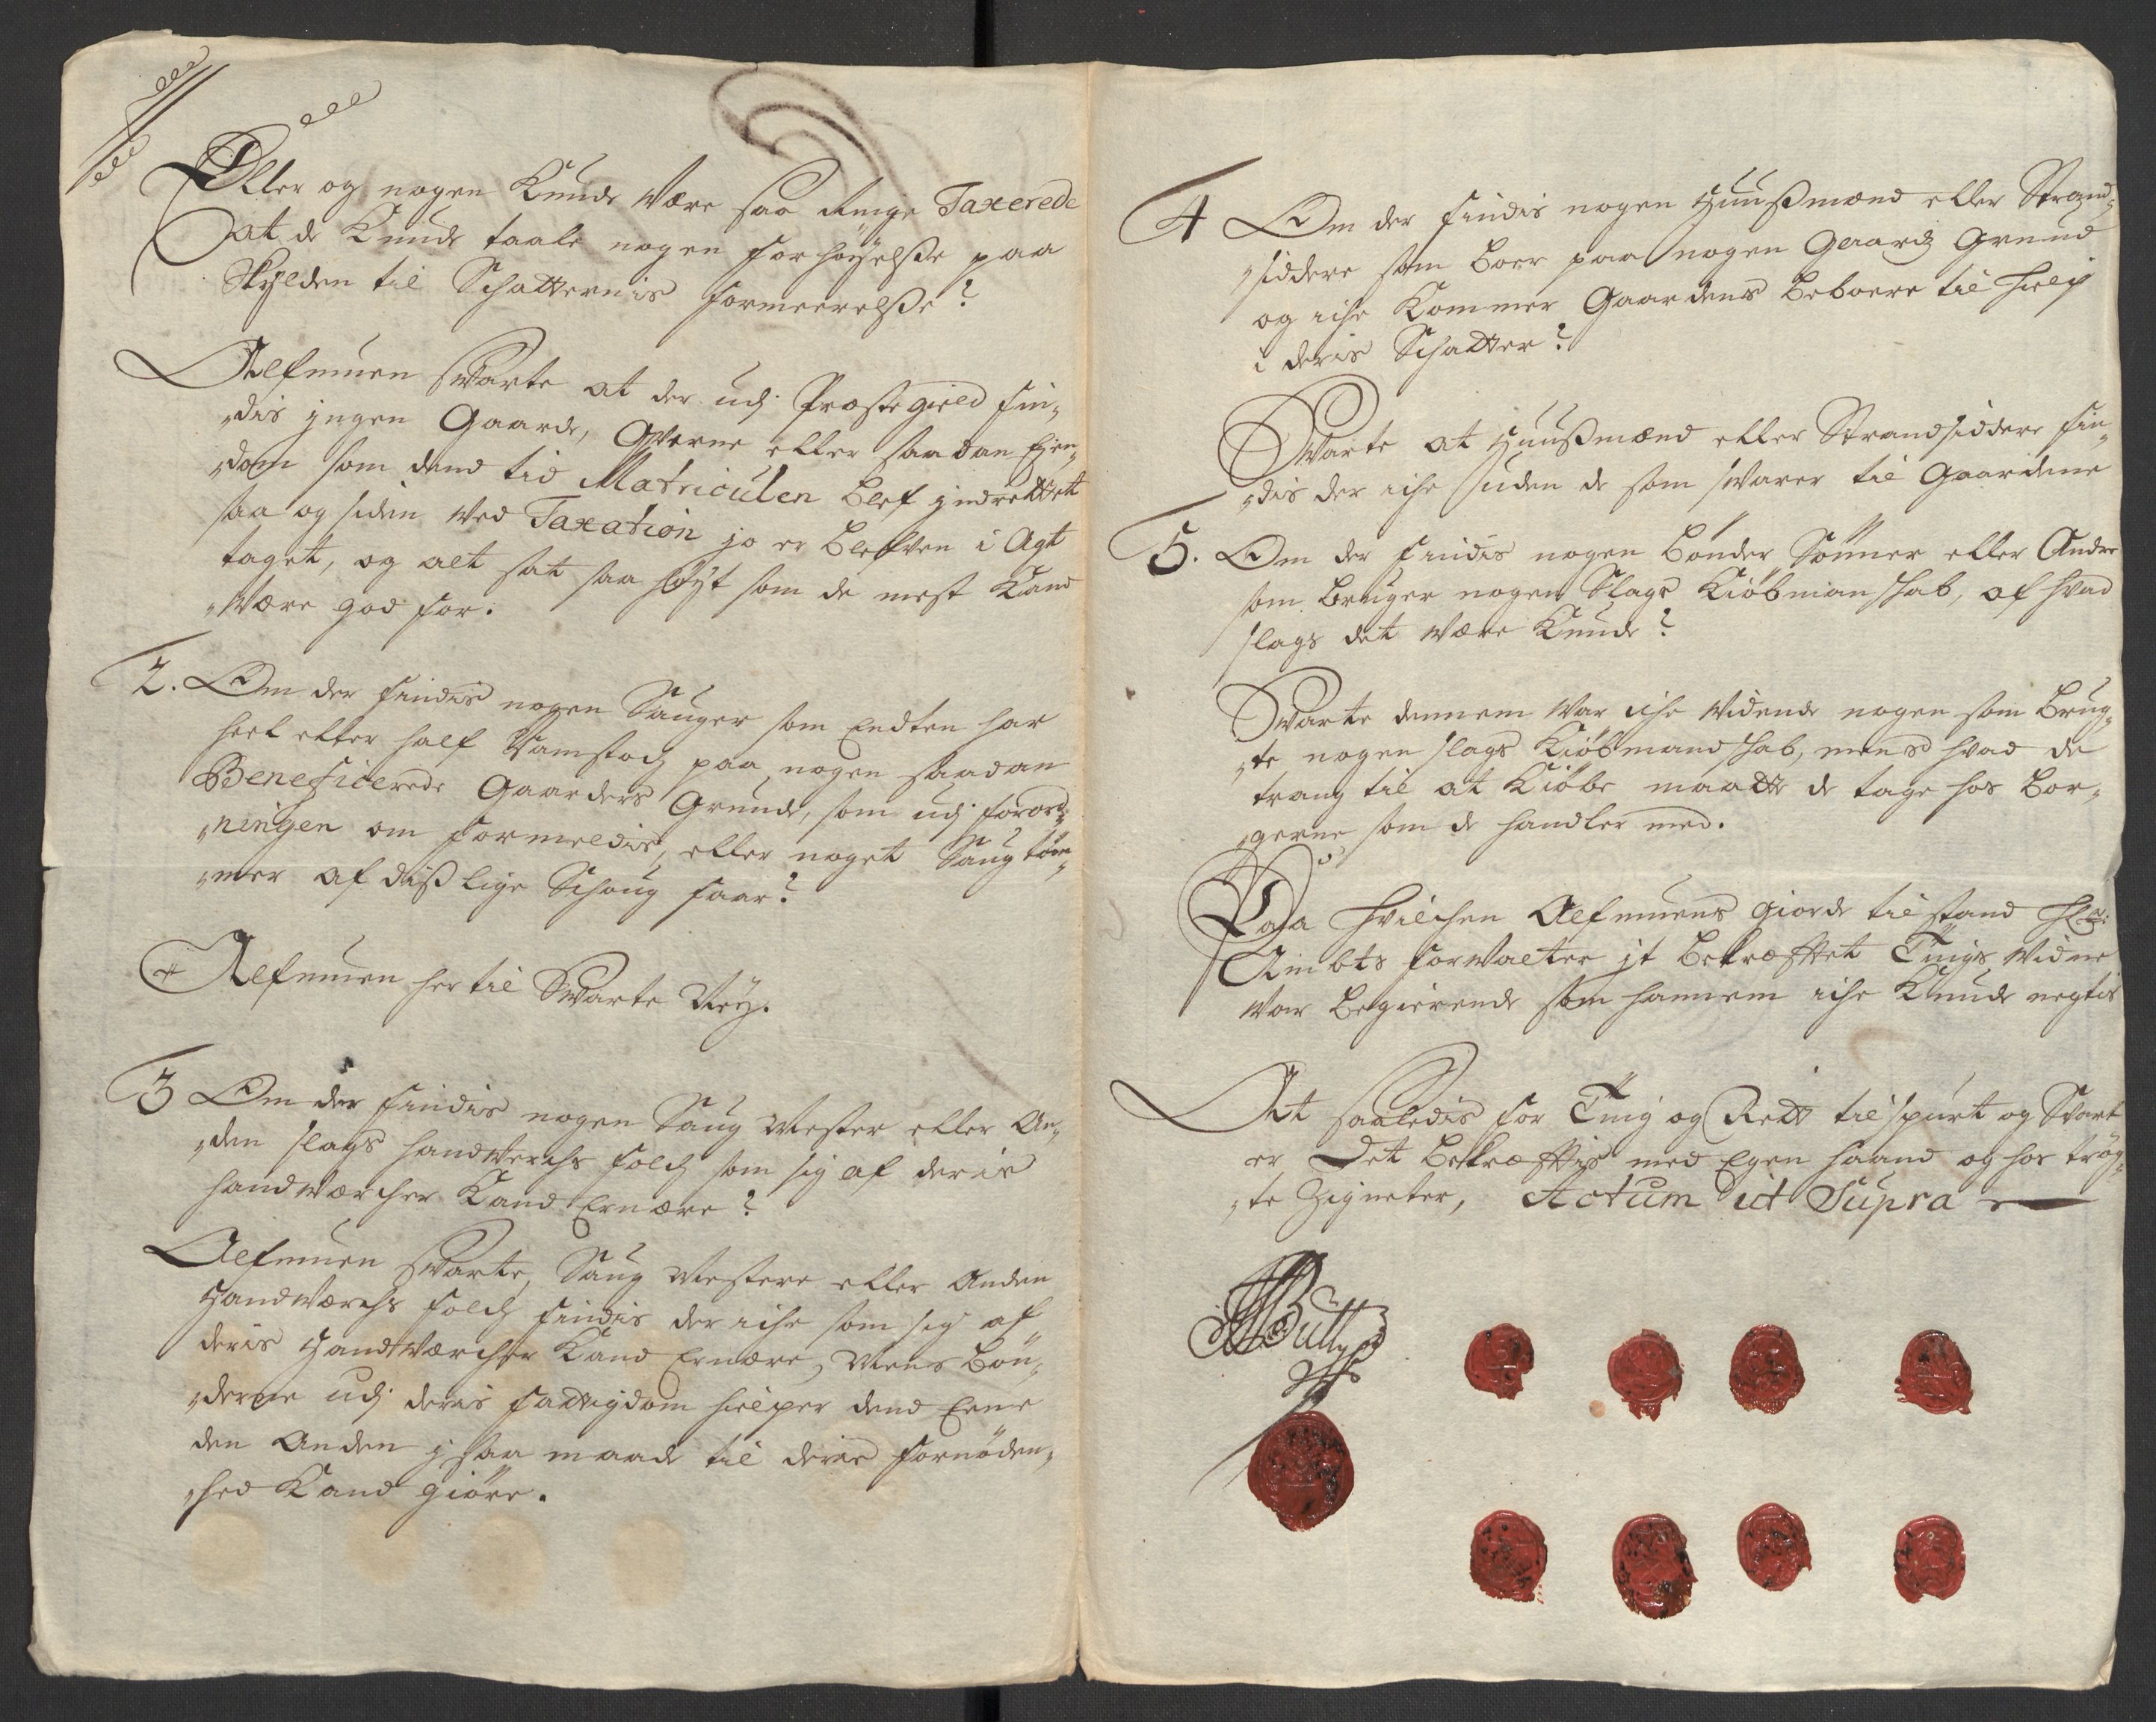 Eller og nogen Kunde være saa ringe Taxerede
at de Kunde taale nogen forhøyelsse paa
Skylden til Schatternis formeerelsse?
Alfmuen Svarte at der udj Præstegield fin,,
,,dis jngen Gaarde, Qverne eller saadan Eien,,
,,dom som dend tid Matriculen blef jndrettet
saa og siden ved Taxation jo er blefven i Agt
taget, og alt sat saa høyt som de mest Kand
være god for.
2. Om der findis nogen Sauger som Endten har
heel eller half Damstoch paa nogen saadan
Beneficerede Gaarders Grunde, som udj forord,,
,,ningen om formeldis, eller noget Saug tøm,,
,,mer af dißlige Schoug faar?
Alfmuen her til Svarte Neÿ.
3 Om der findis nogen Saug Mester eller An,,
,,den slags handverchs folch som sig af deris
handværcher Kand Ernære?
Alfmuen Svarte, Saug Mestere eller Anden
Handværchs folch findis der iche som sig af
deris Handtværcher Kand Ernære, Mens Bøn,,
,,derne udj deris fattigdom hielper dend Eene
den Anden j saa maade til deris fornøden,,
,,hed Kand giøre.
4 Om der findis nogen Huußmænd eller Strand,,
,,siddere som boer paa nogen Gaards Grund
og iche Kommer Gaardens beboere til hielp
i deris Schatter?
Svarte at Huußmænd eller Strandsiddere fin,,
,,dis der iche uden de som svarer til Gaardene
5. Om der findis nogen bønder Sønner eller Andre
som bruger nogen Slags Kiøbmanschab, af hvad
slags det være Kunde?
Svarte dennem var iche vidende nogen som brug,,
,,te nogen slags Kiøbmandschab, mens hvad de
trang til at Kiøbe maatte de tage hos bor,,
,,gerne som de handler med.
Paa hvilchen Alfmuens giorde tilstand Hr:
Ambts forvalter jt bekræfftet Tings vidne
var begierende som hannem iche Kunde negtis
At saaledis for Ting og Rett tilspurt og Svart
er Det bekræfftis med Egen haand og hos trøg,,
,,te Zigneter, Actum ut Supra